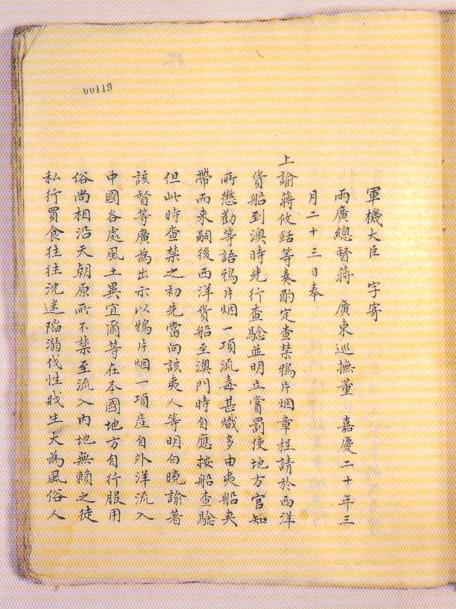 00119
軍機大臣　字寄
兩廣總督蔣　廣東巡撫董　嘉慶二十年三
月二十三日奉
上諭蔣攸銛等奏酌定查禁鴉片烟章程請於西洋
貨船到澳時先行查驗並明立賞罰使地方官知
所懲勸等語鴉片烟一項流毒甚熾多由夷船夾
帶而來嗣後西洋貨船至澳門時自應按船查驗
但此時查禁之初先當向該夷人等明白曉諭著
該督等廣為出示以鴉片烟一項產自外洋流入
中國各處風土異宜爾等在本國地方自行服用
俗尚相沿天朝原所不禁至流入內地無賴之徒
私行買食往往沈迷陷溺伐性戕生大為風俗人